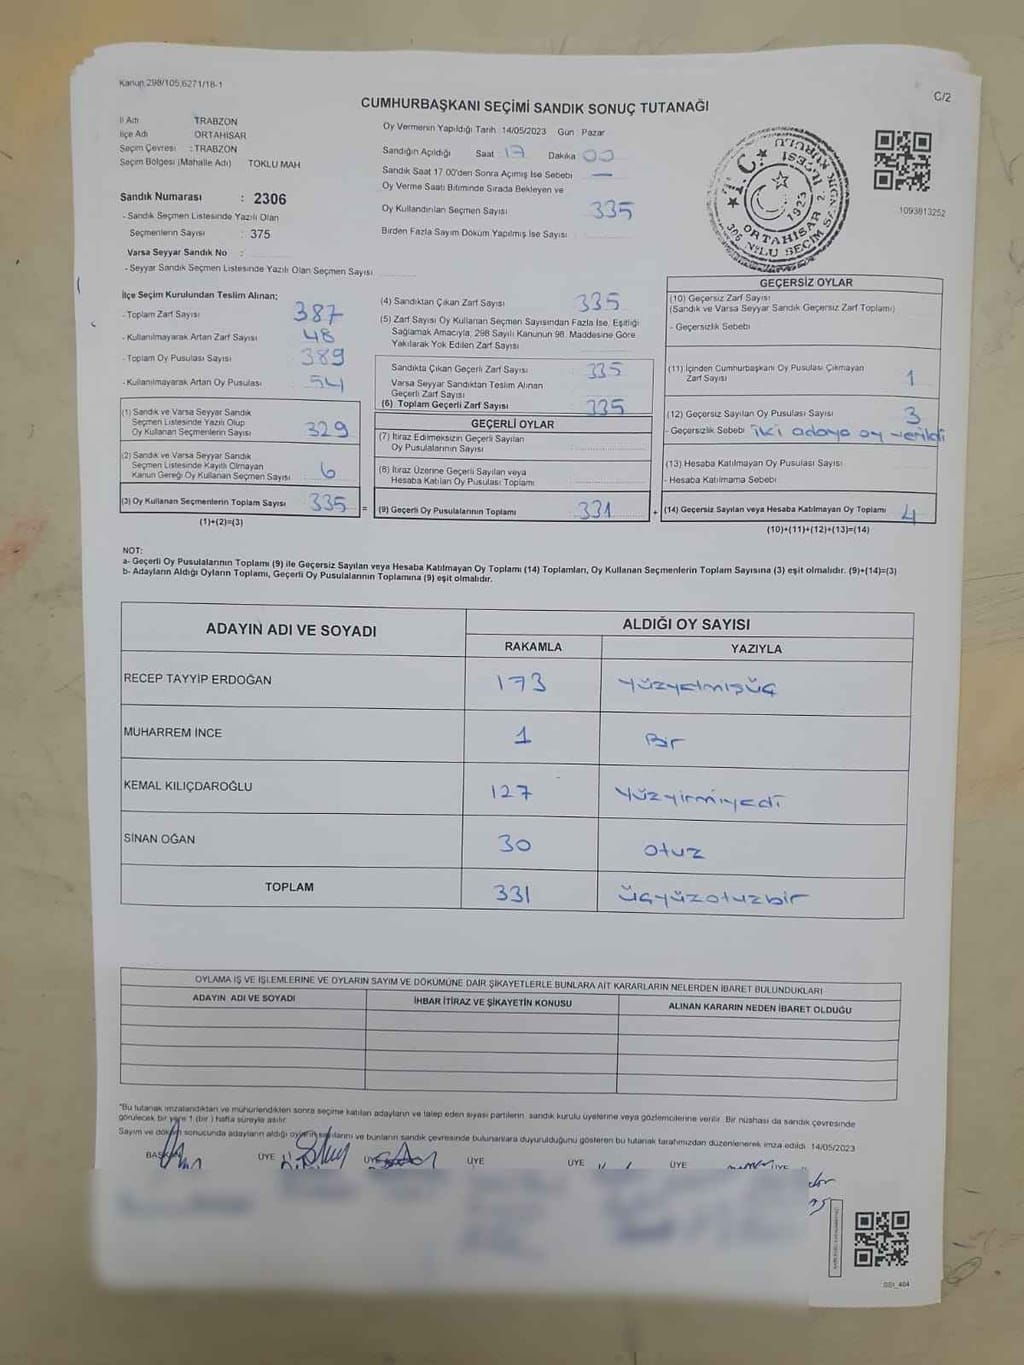 Kanun 298/105,6271/18-1
C/2
CUMHURBAŞKANI SEÇİMİ SANDIK SONUÇ TUTANAĞI
İl Adı TRABZON
İlçe Adı ORTAHİSAR
Seçim Çevresi : TRABZON
Seçim Bölgesi (Mahalle Adı) TOKLU MAH
Sandık Numarası : 2306
- Sandık Seçmen Listesinde Yazılı Olan
Seçmenlerin Sayısı : 375
Varsa Seyyar Sandık No :
- Seyyar Sandık Seçmen Listesinde Yazılı Olan Seçmen Sayısı
Oy Vermenin Yapıldığı Tarih :14/05/2023 Gün : Pazar
Sandığın Açıldığı Saat : 17 Dakika 00
Sandık Saat 17.00'den Sonra Açımış İse Sebebi —
Oy Verme Saati Bitiminde Sırada Bekleyen ve
Oy Kullandırılan Seçmen Sayısı 335
Birden Fazla Sayım Döküm Yapılmış İse Sayısı
T.C.
1923
ORTAHİSAR 2. İLÇESİ
306 NOLU SEÇİM SANDIK KURULU
1093813252
İlçe Seçim Kurulundan Teslim Alınan;
- Toplam Zarf Sayısı 387
- Kullanılmayarak Artan Zarf Sayısı 48
- Toplam Oy Pusulası Sayısı 389
- Kullanılmayarak Artan Oy Pusulası 54
(1) Sandık ve Varsa Seyyar Sandık
Seçmen Listesinde Yazılı Olup
Oy Kullanan Seçmenlerin Sayısı 329
(2) Sandık ve Varsa Seyyar Sandık
Seçmen Listesinde Kayıtlı Olmayan
Kanun Gereği Oy Kullanan Seçmen Sayısı 6
(3) Oy Kullanan Seçmenlerin Toplam Sayısı 335 =
(1)+(2)=(3)
(4) Sandıktan Çıkan Zarf Sayısı 335
(5) Zarf Sayısı Oy Kullanan Seçmen Sayısından Fazla İse, Eşitliği
Sağlamak Amacıyla, 298 Sayılı Kanunun 98. Maddesine Göre
Yakılarak Yok Edilen Zarf Sayısı
Sandıkta Çıkan Geçerli Zarf Sayısı 335
Varsa Seyyar Sandıktan Teslim Alınan
Geçerli Zarf Sayısı
(6) Toplam Geçerli Zarf Sayısı 335
GEÇERLİ OYLAR
(7) İtiraz Edilmeksizin Geçerli Sayılan
Oy Pusulalarının Sayısı
(8) İtiraz Üzerine Geçerli Sayılan veya
Hesaba Katılan Oy Pusulası Toplamı
(9) Geçerli Oy Pusulalarının Toplamı 331 +
GEÇERSİZ OYLAR
(10) Geçersiz Zarf Sayısı
(Sandık ve Varsa Seyyar Sandık Geçersiz Zarf Toplamı)
- Geçersizlik Sebebi
(11) İçinden Cumhurbaşkanı Oy Pusulası Çıkmayan
Zarf Sayısı 1
(12) Geçersiz Sayılan Oy Pusulası Sayısı 3
- Geçersizlik Sebebi iki adaya oy verildi
(13) Hesaba Katılmayan Oy Pusulası Sayısı
- Hesaba Katılmama Sebebi
(14) Geçersiz Sayılan veya Hesaba Katılmayan Oy Toplamı 4
(10)+(11)+(12)+(13)=(14)
NOT:
a- Geçerli Oy Pusulalarının Toplamı (9) ile Geçersiz Sayılan veya Hesaba Katılmayan Oy Toplamı (14) Toplamları, Oy Kullanan Seçmenlerin Toplam Sayısına (3) eşit olmalıdır. (9)+(14)=(3)
b- Adayların Aldığı Oyların Toplamı, Geçerli Oy Pusulalarının Toplamına (9) eşit olmalıdır.
ADAYIN ADI VE SOYADI ALDIĞI OY SAYISI
RAKAMLA YAZIYLA
RECEP TAYYİP ERDOĞAN 173 yüzyetmişüç
MUHARREM İNCE 1 Bir
KEMAL KILIÇDAROĞLU 127 yüzyirmiyedi
SİNAN OĞAN 30 otuz
TOPLAM 331 üçyüzotuzbir
OYLAMA İŞ VE İŞLEMLERİNE VE OYLARIN SAYIM VE DÖKÜMÜNE DAİR ŞİKAYETLERLE BUNLARA AİT KARARLARIN NELERDEN İBARET BULUNDUKLARI
ADAYIN ADI VE SOYADI İHBAR İTİRAZ VE ŞİKAYETİN KONUSU ALINAN KARARIN NEDEN İBARET OLDUĞU
*Bu tutanak imzalandıktan ve mühürlendikten sonra seçime katılan adayların ve talep eden siyasi partilerin sandık kurulu üyelerine veya gözlemcilerine verilir. Bir nüshası da sandık çevresinde
görülecek bir yere 1 (bir) hafta süreyle asılır.
Sayım ve döküm sonucunda adayların aldığı oyların sayılarını ve bunların sandık çevresinde bulunanlara duyurulduğunu gösteren bu tutanak tarafımızdan düzenlenerek imza edildi. 14/05/2023
BAŞKAN ÜYE ÜYE ÜYE ÜYE ÜYE ÜYE